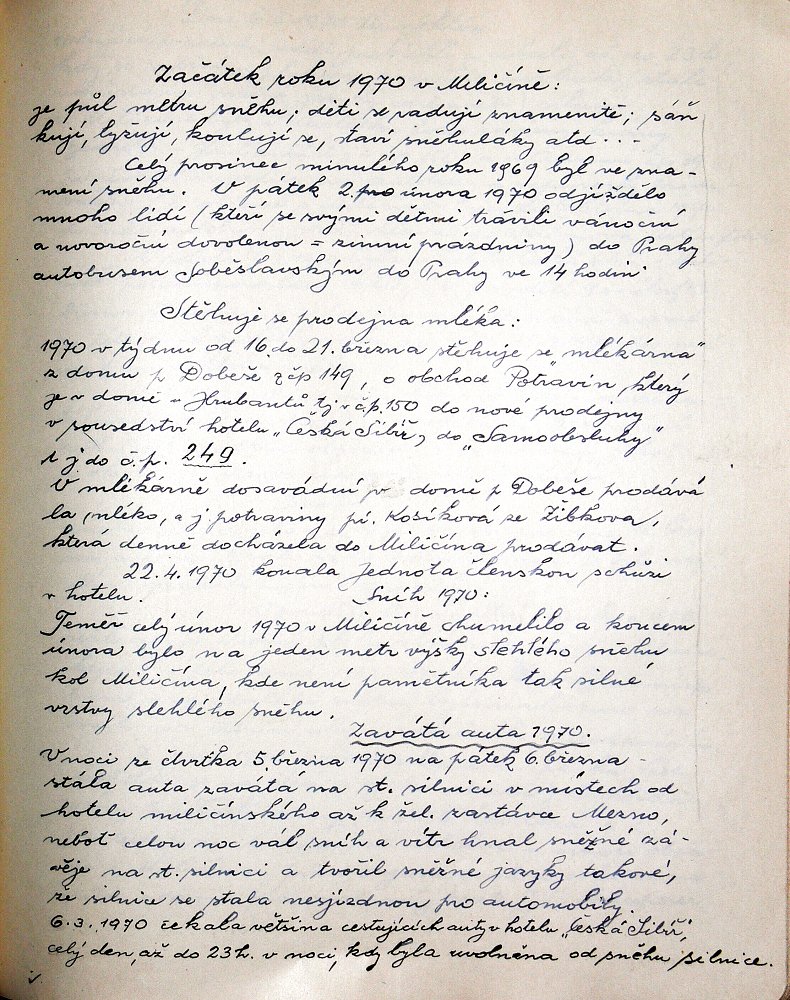 Začátek roku 1970 v Miličíně:
je půl metru sněhu; děti se radují znamenitě; sáň
kují, lyžují, koulují se, staví sněhuláky atd...-
Celý prosinec minulého roku 1969 byl ve zna-
mení sněhu. V pátek 2. února 1970 odjíždělo
mnoho lidí (kteří se svými dětmi trávili vánoční
a novoroční dovolenou = zimní prázdniny) do Prahy
autobusem Soběslavským do Prahy ve 14 hodin.
Stěhuje se prodejna mléka:
1970 v týdnu od 16. do 21. března stěhuje se „mlékárna"
z domu p Dobeše z čp 149, o obchod Potravin, který
je v domě u Hrubantů tj v č.p. 150 do nové prodejny
v sousedství hotelu „Česká Sibiř, do „Samoobsluhy"
t j do č. p. 249.
V mlékárně dosavádní v domě p Dobeše prodává
la mléko, a j potraviny pí. Košíková ze Zibkova,
která denně docházela do Miličína prodávat.
22.4.1970 konala Jednota členskou schůzi
v hotelu. Sníh 1970:
Teměř celý únor 1970 v Miličíně chumelilo a koncem
února bylo na jeden metr výšky slehlého sněhu
kol Miličína, kde není pamětníka tak silné
vrstvy slehlého sněhu.
Zavátá auta 1970.
V noci ze čtvrtka 5. března 1970 na pátek 6. března -
stála auta zavátá na st. silnici v místech od
hotelu miličínského až k žel. zastávce Mezno,
neboť celou noc vál sníh a vítr hnal sněžné zá-
věje na st. silnici a tvořil sněžné jazyky takové,
že silnice se stala nesjízdnou pro automobily.
6.3.1970 čekala většina cestujících auty v hotelu „Česká Sibiř",
celý den, až do 23 h. v noci, kdy byla uvolněna od sněhu silnice.